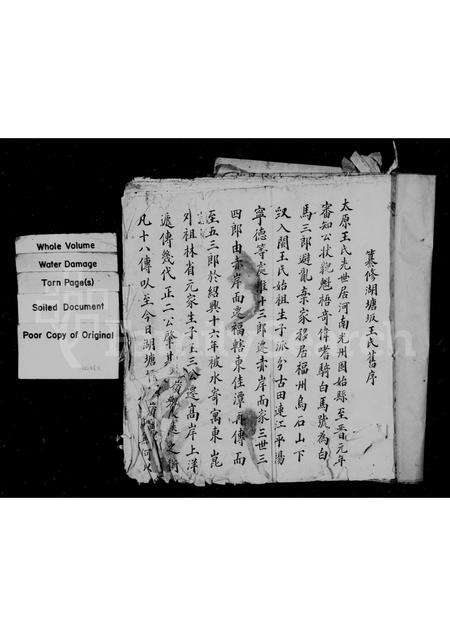 Whole Volume
Water Damage
Torn Page(s)
Soiled Document
Poor Copy of Original
纂修湖塘坂王氏舊序
太原王氏先世居河南光州固始縣至晋元年
審知公狀貌魁梧奇偉嗜騎白馬號為白
馬三郎避亂棄家移居福州烏石山下
入閩王氏始祖生子派分古田連江平陽
寧德等處惟十三郎遷赤岸而家三世三
四郎由赤岸而遷福轄東佳潭再傳而
至五三郎於紹興十六年被水寄寓東崑
外祖林省元家生子王三公遷高岸上洋
遞傳幾代正二公肇基
凡十八傳以至今日湖塘